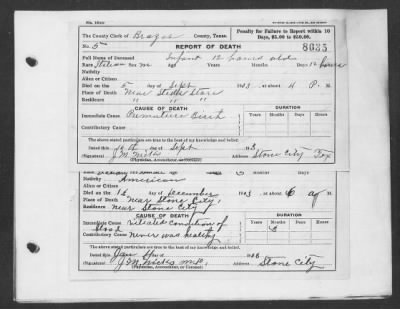 The County Clerk of Brazos County, Texas.
Penalty for Failure to Report within 10 Days, $5.00 to $50.00.
No. 5 REPORT OF DEATH 8635
Full Name of Deceased Infant 12 hours old
Race Sex m Age Years Months Days 12 hours
Nativity
Alien or Citizen
Died on the 5 day of Sept 1903 at about 4 P. M.
Place of Death Near Store
Residence " " "
CAUSE OF DEATH DURATION
Immediate Cause Premature Birth Years Months Days Hours
Contributory Cause
The above stated particulars are true to the best of my knowledge and belief.
Dated this 10th of Sept 1903
(Signature) (Physician, Accoucheur, or Coroner) Address Stone City Tex
Nativity American
Alien or Citizen
Died on the 12 day of December 1903 at about 6 a M.
Place of Death Near Stone City
Residence Near Stone City
CAUSE OF DEATH DURATION
Immediate Cause condition of Years Months Days Hours
blood
Contributory Cause never was healthy
The above stated particulars are true to the best of my knowledge and belief.
Dated this Jan
(Signature) (Physician, Accoucheur, or Coroner) Address Stone City